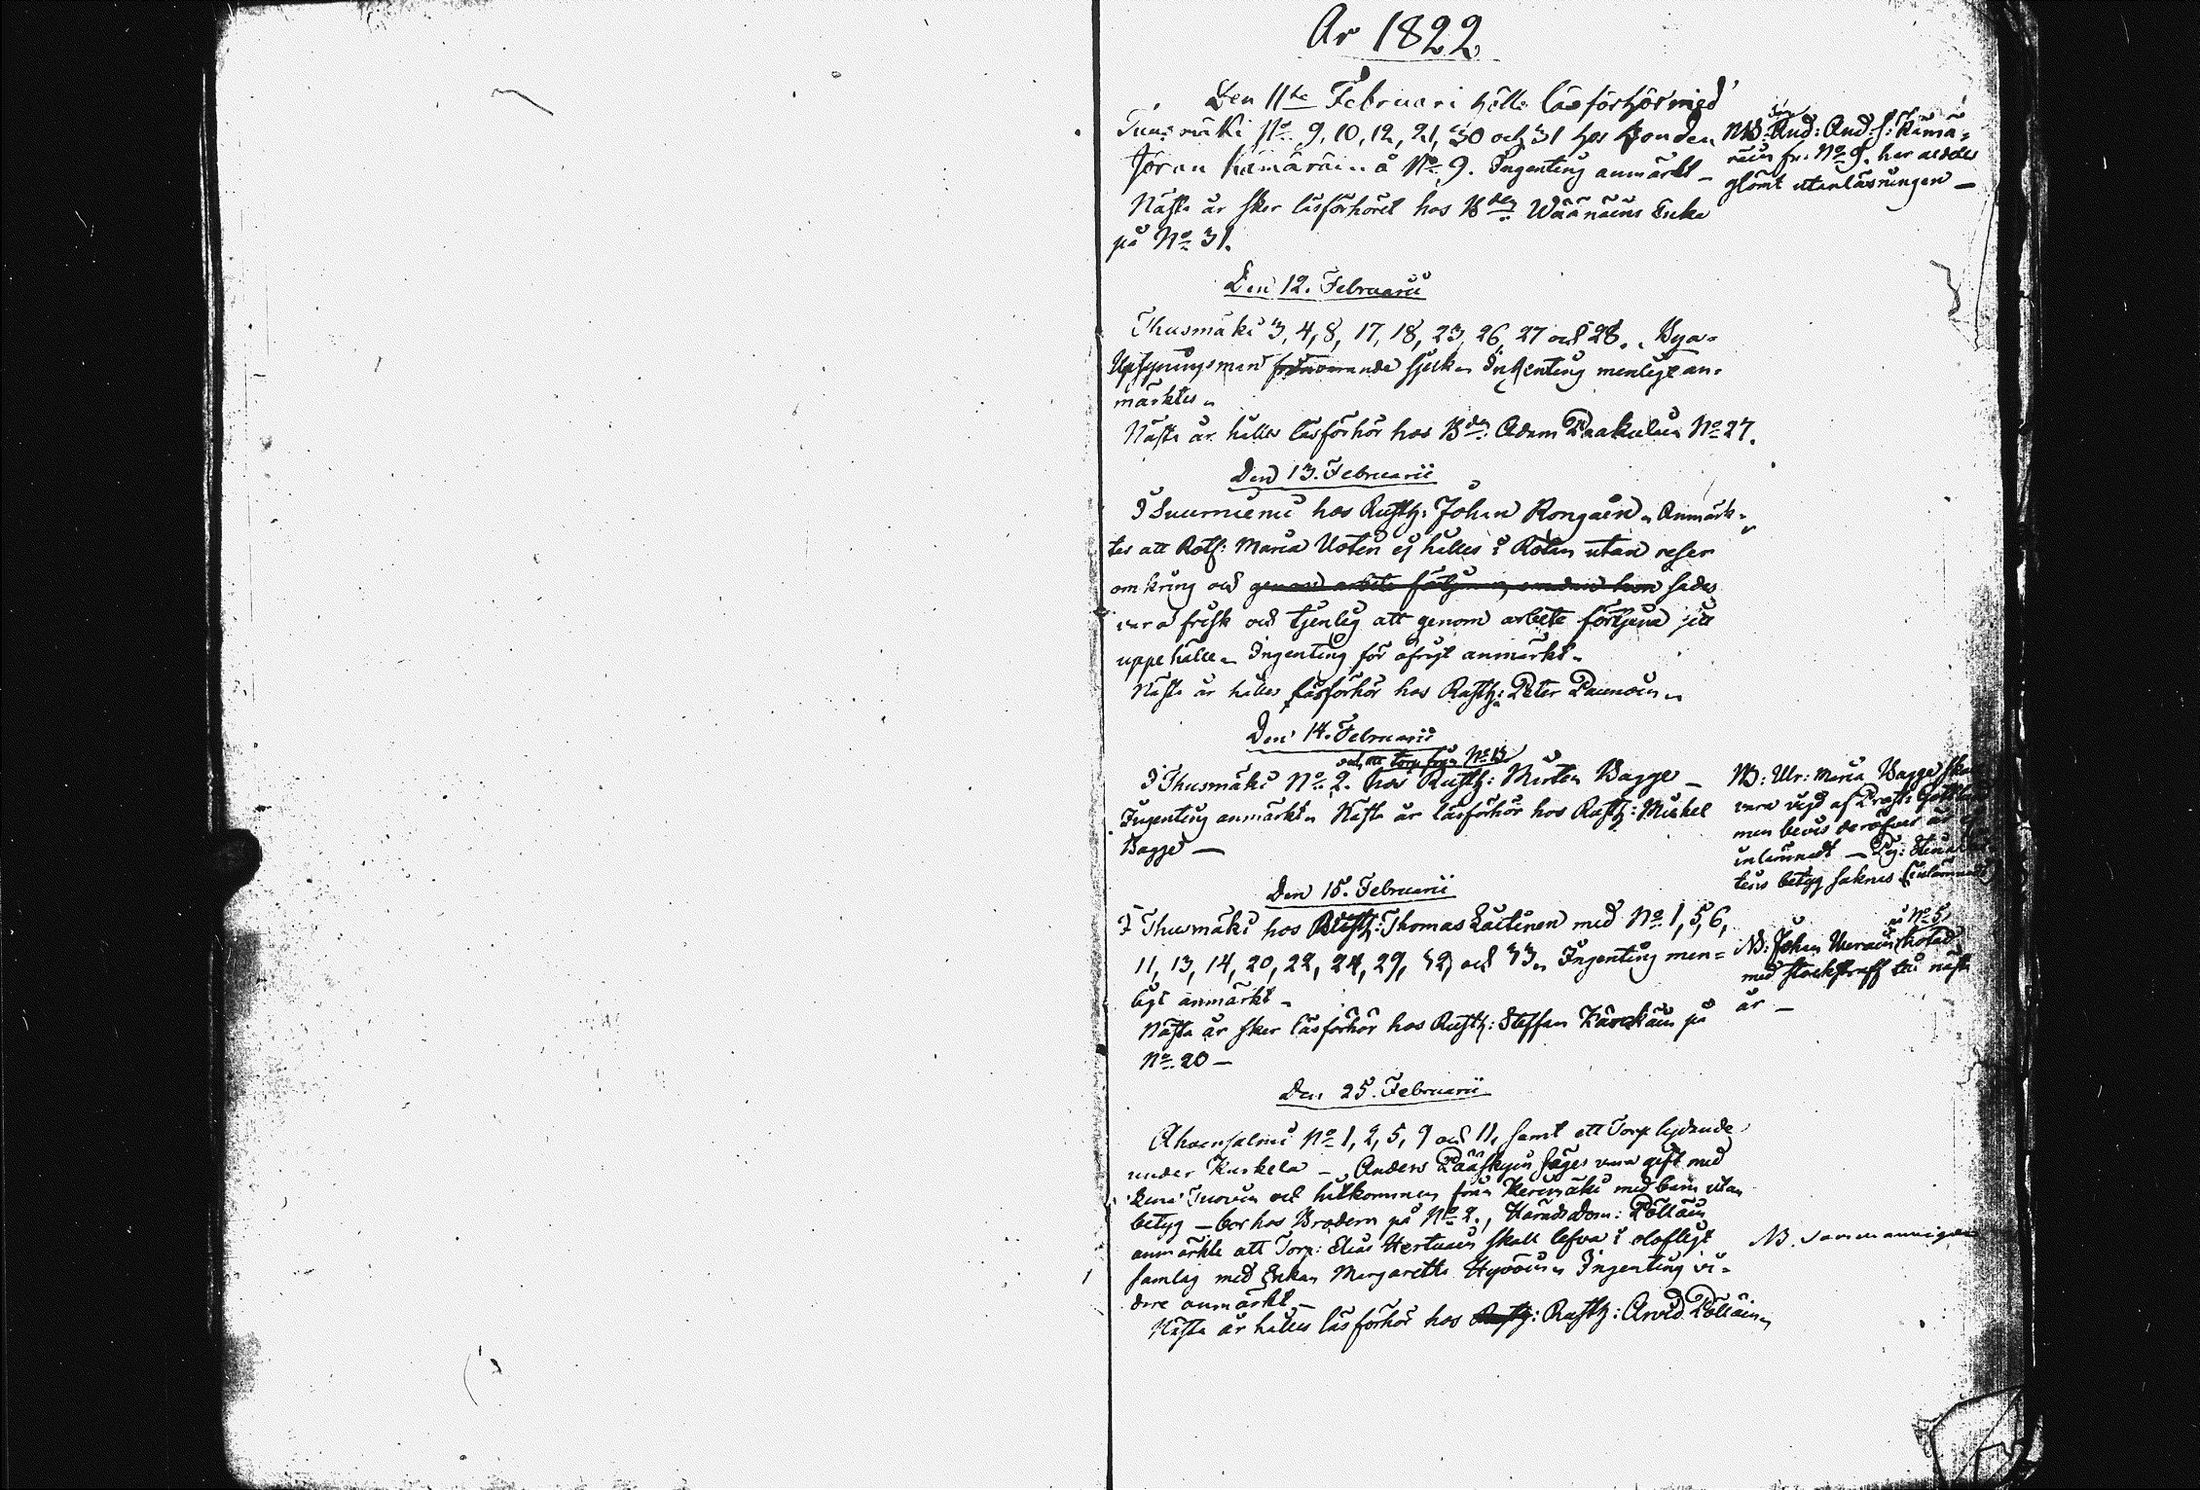 År 1822
Den 11te Februari hölls läsförhör med
Tuusmäki No 9, 10, 12, 21, 30 och 31 hos Bonden
Jöran Hämäräin å No 9. Ingenting anmärkt –
Nästa år sker läsförhöret hos Bden Wäänäins Enka
på No 31.
NB: And: And: s: Hämä-
räin fr. No 9. har aldeles
glömt utanläsningen –
Den 12. Februarii
Thusmäki 3, 4, 8, 17, 18, 23, 26, 27 och 28. Bya-
Upsyningsman frånvarande sjuk. Ingenting menligt an-
märktes.
Nästa år hålles läsförhör hos Bdn Adam Paakulin No 27.
Den 13. Februarii
I Suurniemi hos Rusth: Johan Rongain. Anmärk-
tes att Roth: Maria Uotin ej hålles i Rotan utan reser
omkring och genom arbete sades
vara frisk och tjenlig att genom arbete förtjena sitt
uppehälle. Ingenting för öfrigt anmärkt.
Nästa år hålles läsförhör hos Rusth: Peter Paunoin.
Den 14. Februarii
och ett torp från No 13
I Thusmäki No 2. hos Rusth: Mårten Bagge –
Ingenting anmärkt. Nästa år läsförhör hos Rusth: Mickel
Bagge –
NB: Ulr: Maria Bagge skall
vara vigd af Prost:
men bevis deröfver är ej
inlemnadt –
betyg saknas
Den 15. Februarii
I Thusmäki hos Rusth: Thomas Laitinen med No 1, 5, 6,
11, 13, 14, 20, 22, 24, 29, 32 och 33. Ingenting men-
ligt anmärkt.
Nästa år sker läsförhör hos Rusth: Steffan Kärckäin på
No 20 –
på No 5
NB: Johan hotad
med stockstraff till nästa
år –
Den 25. Februarii
Ahvensalmi No 1, 2, 5, 9 och 11, samt ett Torp lydande
under Kurkela – Anders Pääskyin säges vara gift med
Tuovin och hitkommen från Kerimäki med barn utan
betyg – bor hos Brodern på No 2., Härads Dom: Pölläin
anmärkte att Torp: Elias Hertuain skall lefva i olofligt
samlag med Enkan Margaretha Hyvöin. Ingenting vi-
dare anmärkt –
Nästa år hålles läsförhör hos Rusth: Rusth: Arvid Pölläin.
NB.